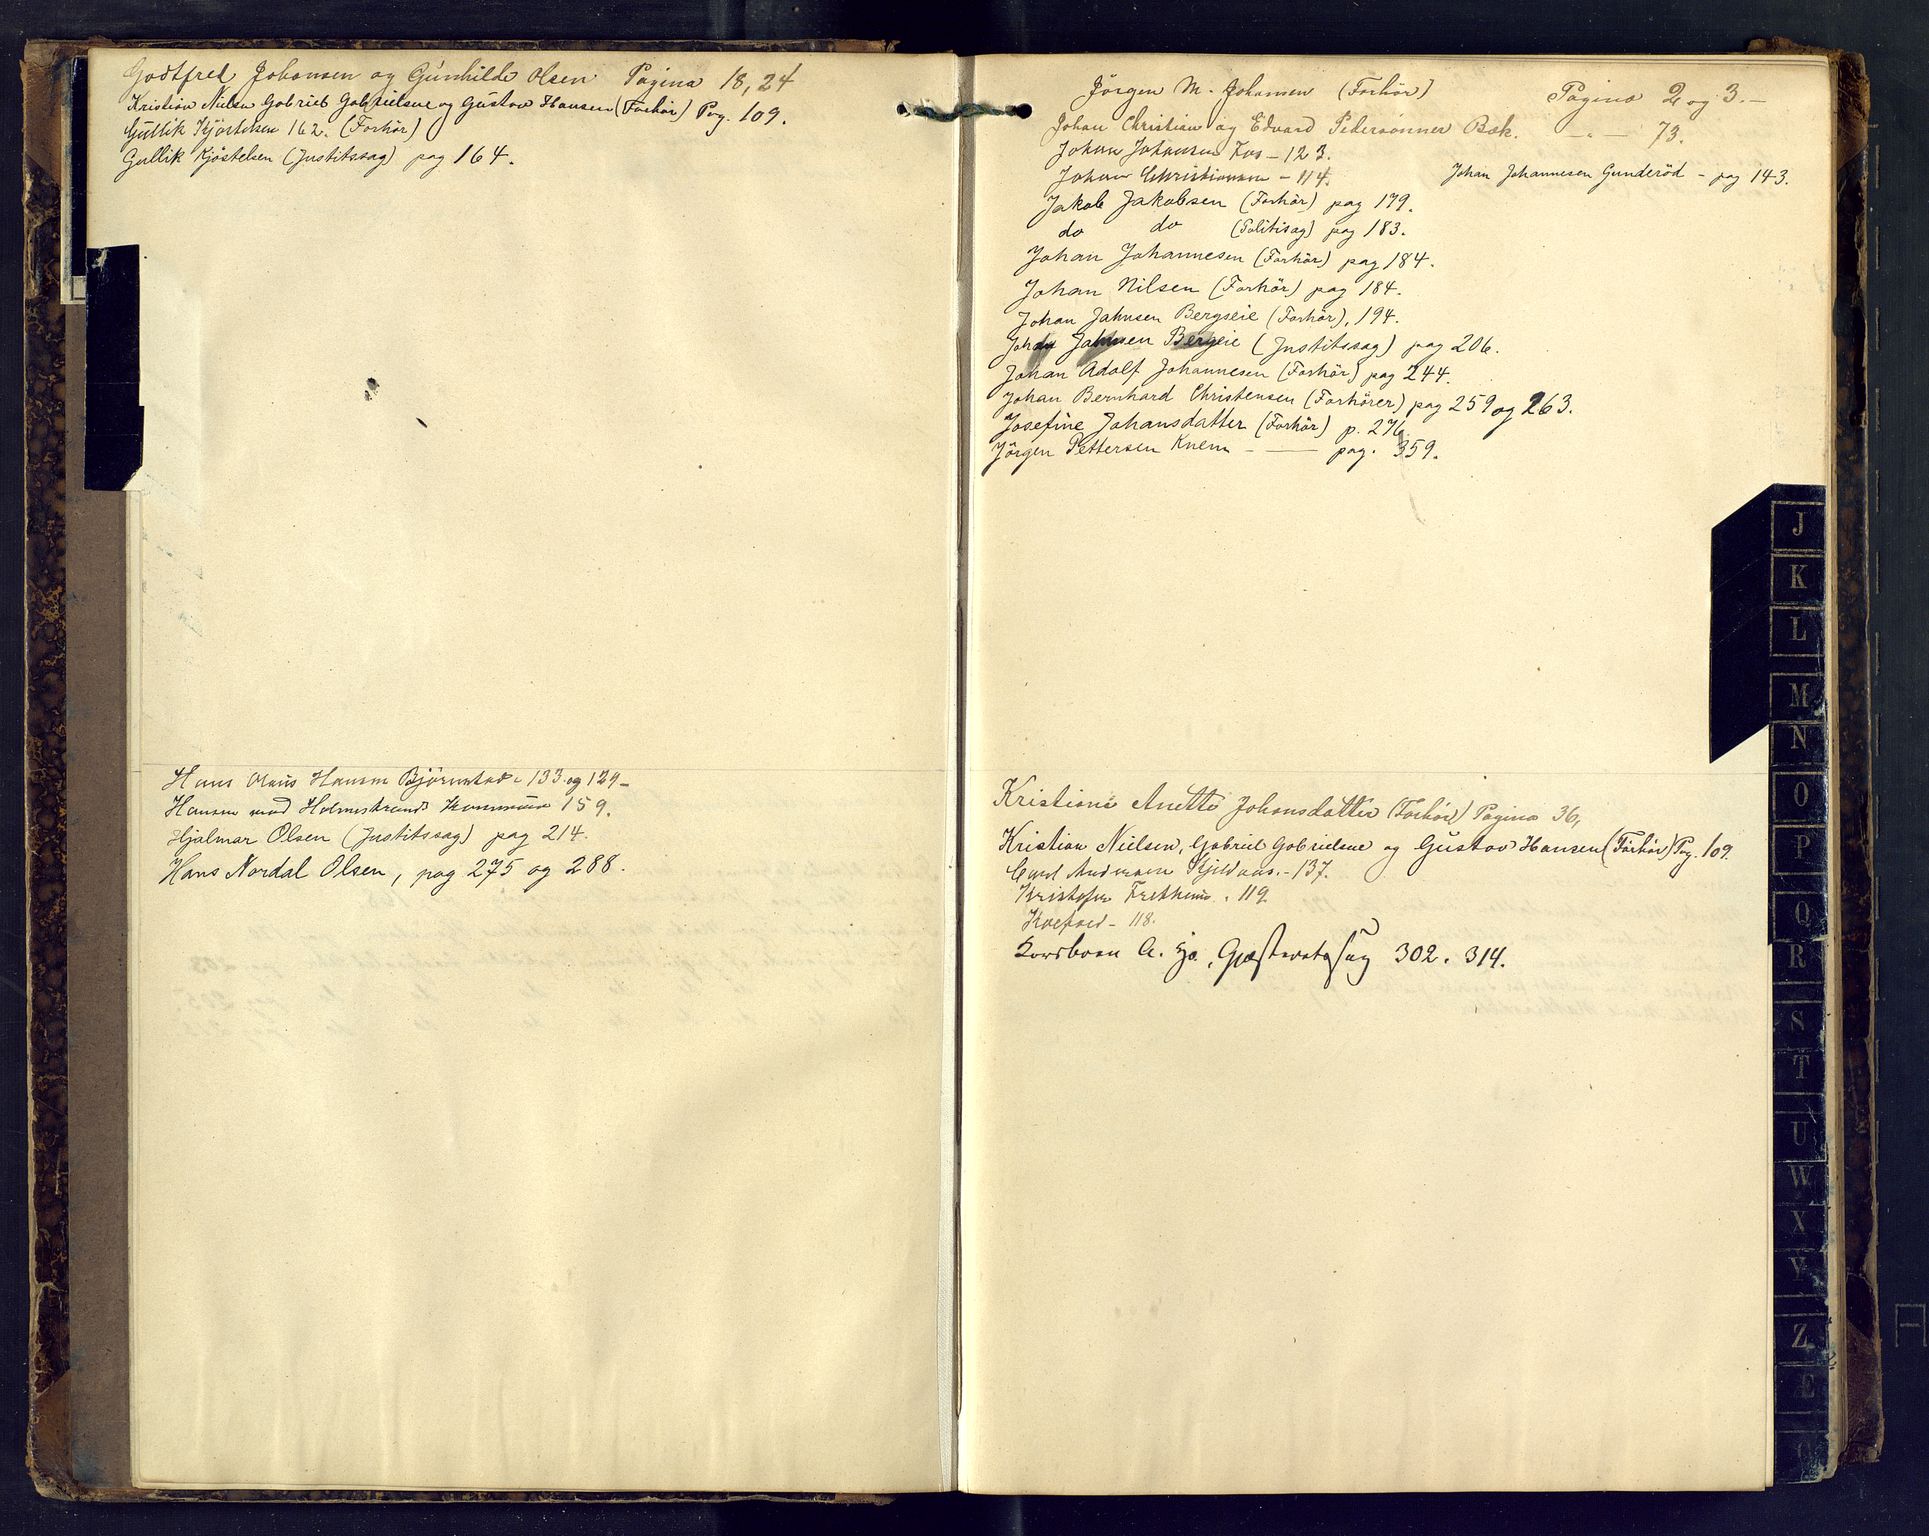 Godtfred Johansen og Gunhilde Olsen Pagina 18, 24
Kristian Nielsen Gabriel Gabrielsene og Gustav Hansen (Forhör) Pag. 109.
Gullik Kjöstelsen 162. (Forhör)
Gullik Kjöstelsen (Justitssag) pag 164.
Hans Olaus Hansen Björnstad - 133 og 129 -
Hansen mod Holmestrands Kommune 159.
Hjalmar Olsen (Justitssag) pag 214.
Hans Nordal Olsen, pag 275 og 288.
Jörgen M. Johansen (Forhör) Pagina 2 og 3. -
Johan Christian og Edvard Pedersönner Bæk. - " - 73.
Johan Johansen - 123.
Johan Christiansen - 114. Johan Johannesen Gunderöd - pag 143.
Jakob Jakobsen (Forhör) pag 179.
do do (Politisag) pag 183.
Johan Johannesen (Forhör) pag 184.
Johan Nilsen (Forhör) pag 184.
Johan Jahnsen Bergseie (Forhör), 194.
Johan Jahnsen Bergeie (Justitssag) pag 206.
Johan Adolf Johannesen (Forhör) pag 244.
Johan Bernhard Christensen (Forhörer) pag 259 og 263.
Josefine Johansdatter (Forhör) p. 276
Jörgen Pettersen Knem - — pag. 359.
Kristiane Anette Johansdatter (Forhör) Pagina 36,
Kristian Nielsen, Gabriel Gabrielsene og Gustav Hansen (Forhör) Pag. 109.
Carl Andersen Kjeldaas. - 137.
Kristofer Fretheim . 119
Koefoed - 118.
A. Gjæsteretssag 302. 314.
J
K
L
M
N
O
P
Q
R
S
T
U
W
X
Y
Z
Æ
Ø